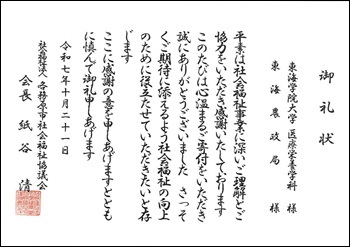 御礼状
東海学院大学 医療栄養学科 様
東海農政局 様
平素は社会福祉事業に深いご理解とご
協力をいただき感謝いたしております
このたびは心温まるご寄付をいただき
誠にありがとうございました さっそ
くご期待に添えるよう社会福祉の向上
のために役立たせていただきたいと存
じます
ここに感謝の意を申しあげますととも
に慎んで御礼申しあげます
令和七年十月二十一日
社会福祉法人 各務原市社会福祉協議会
会長 紙谷 清